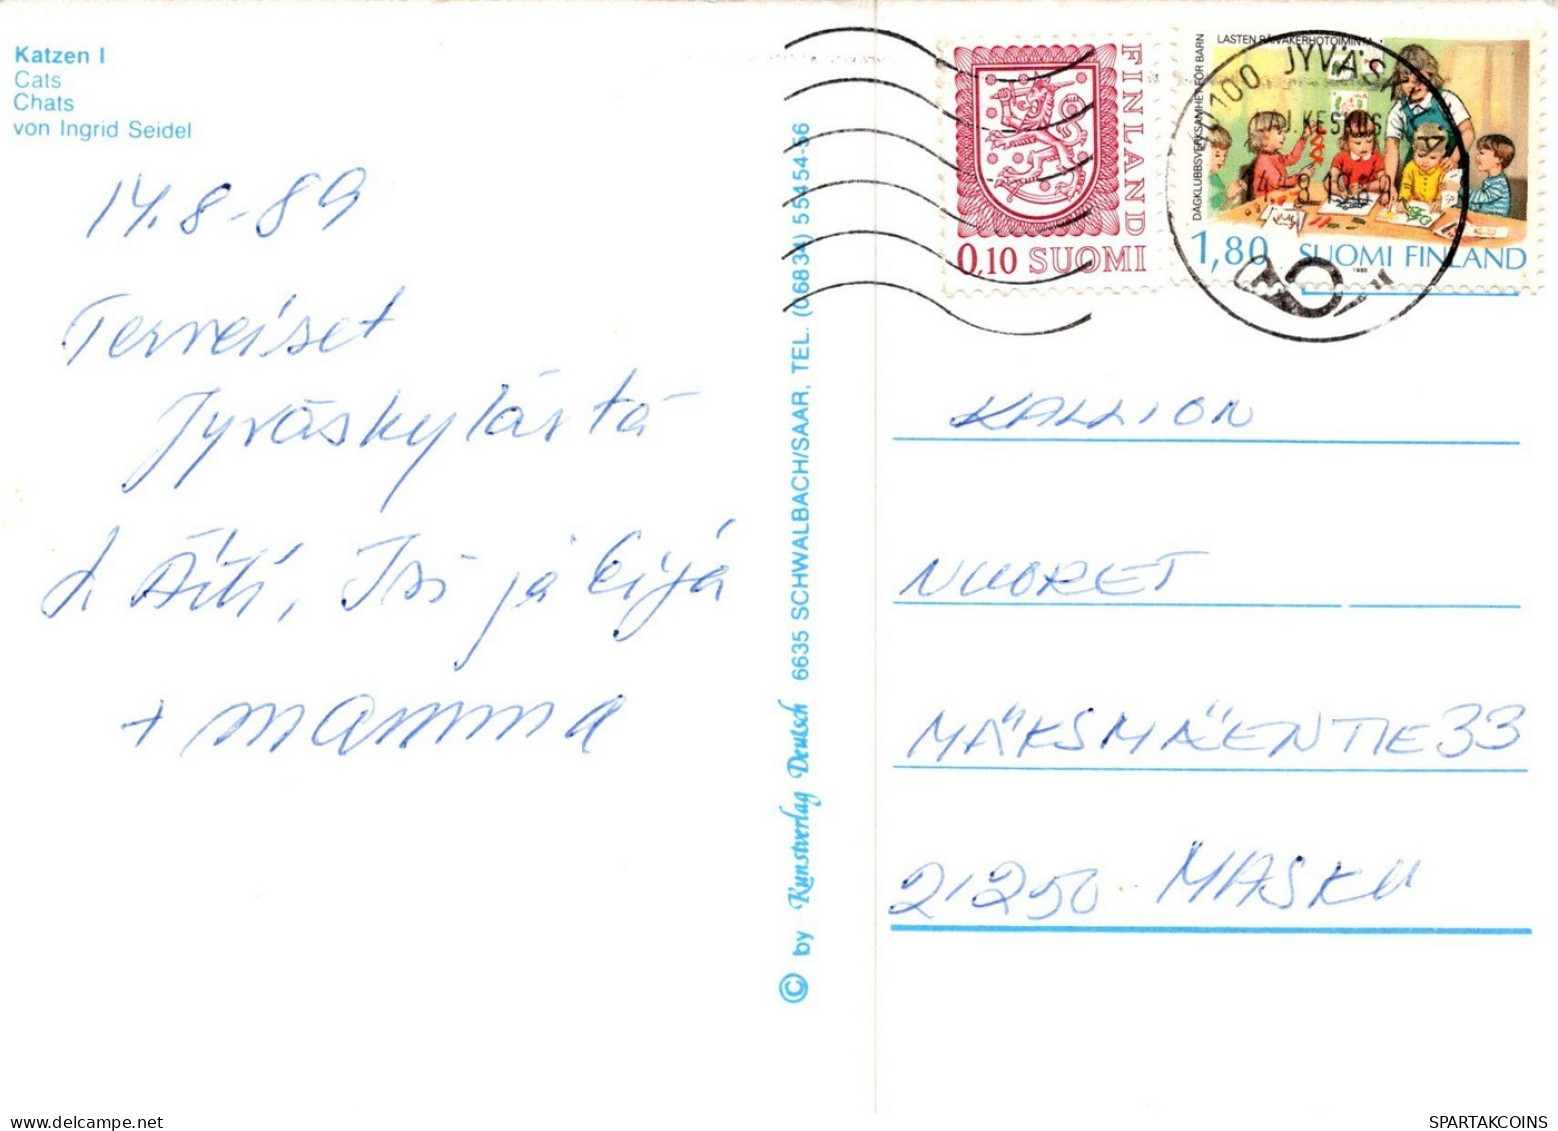 Katzen I
Cats
Chats
von Ingrid Seidel
14.8-89
Terveiset
Jyväskylästä
Äiti, Isi ja Eija
+ mamma
© by Kunstverlag Deutsch 6635 SCHWALBACH/SAAR, TEL. (06834) 55454-56
FINLAND
0,10 SUOMI
LASTEN PÄIVÄKERHOTOIMINTA
DAGKLUBBSVERKSAMHET FÖR BARN
1,80 SUOMI FINLAND
1988
JYVÄSKYLÄ
LAJ.KESKUS
14.-8.1989
KALLION
NUORET
MÄKSMÄENTIE 33
21250 MASKU
SPARTAKCOINS.COM